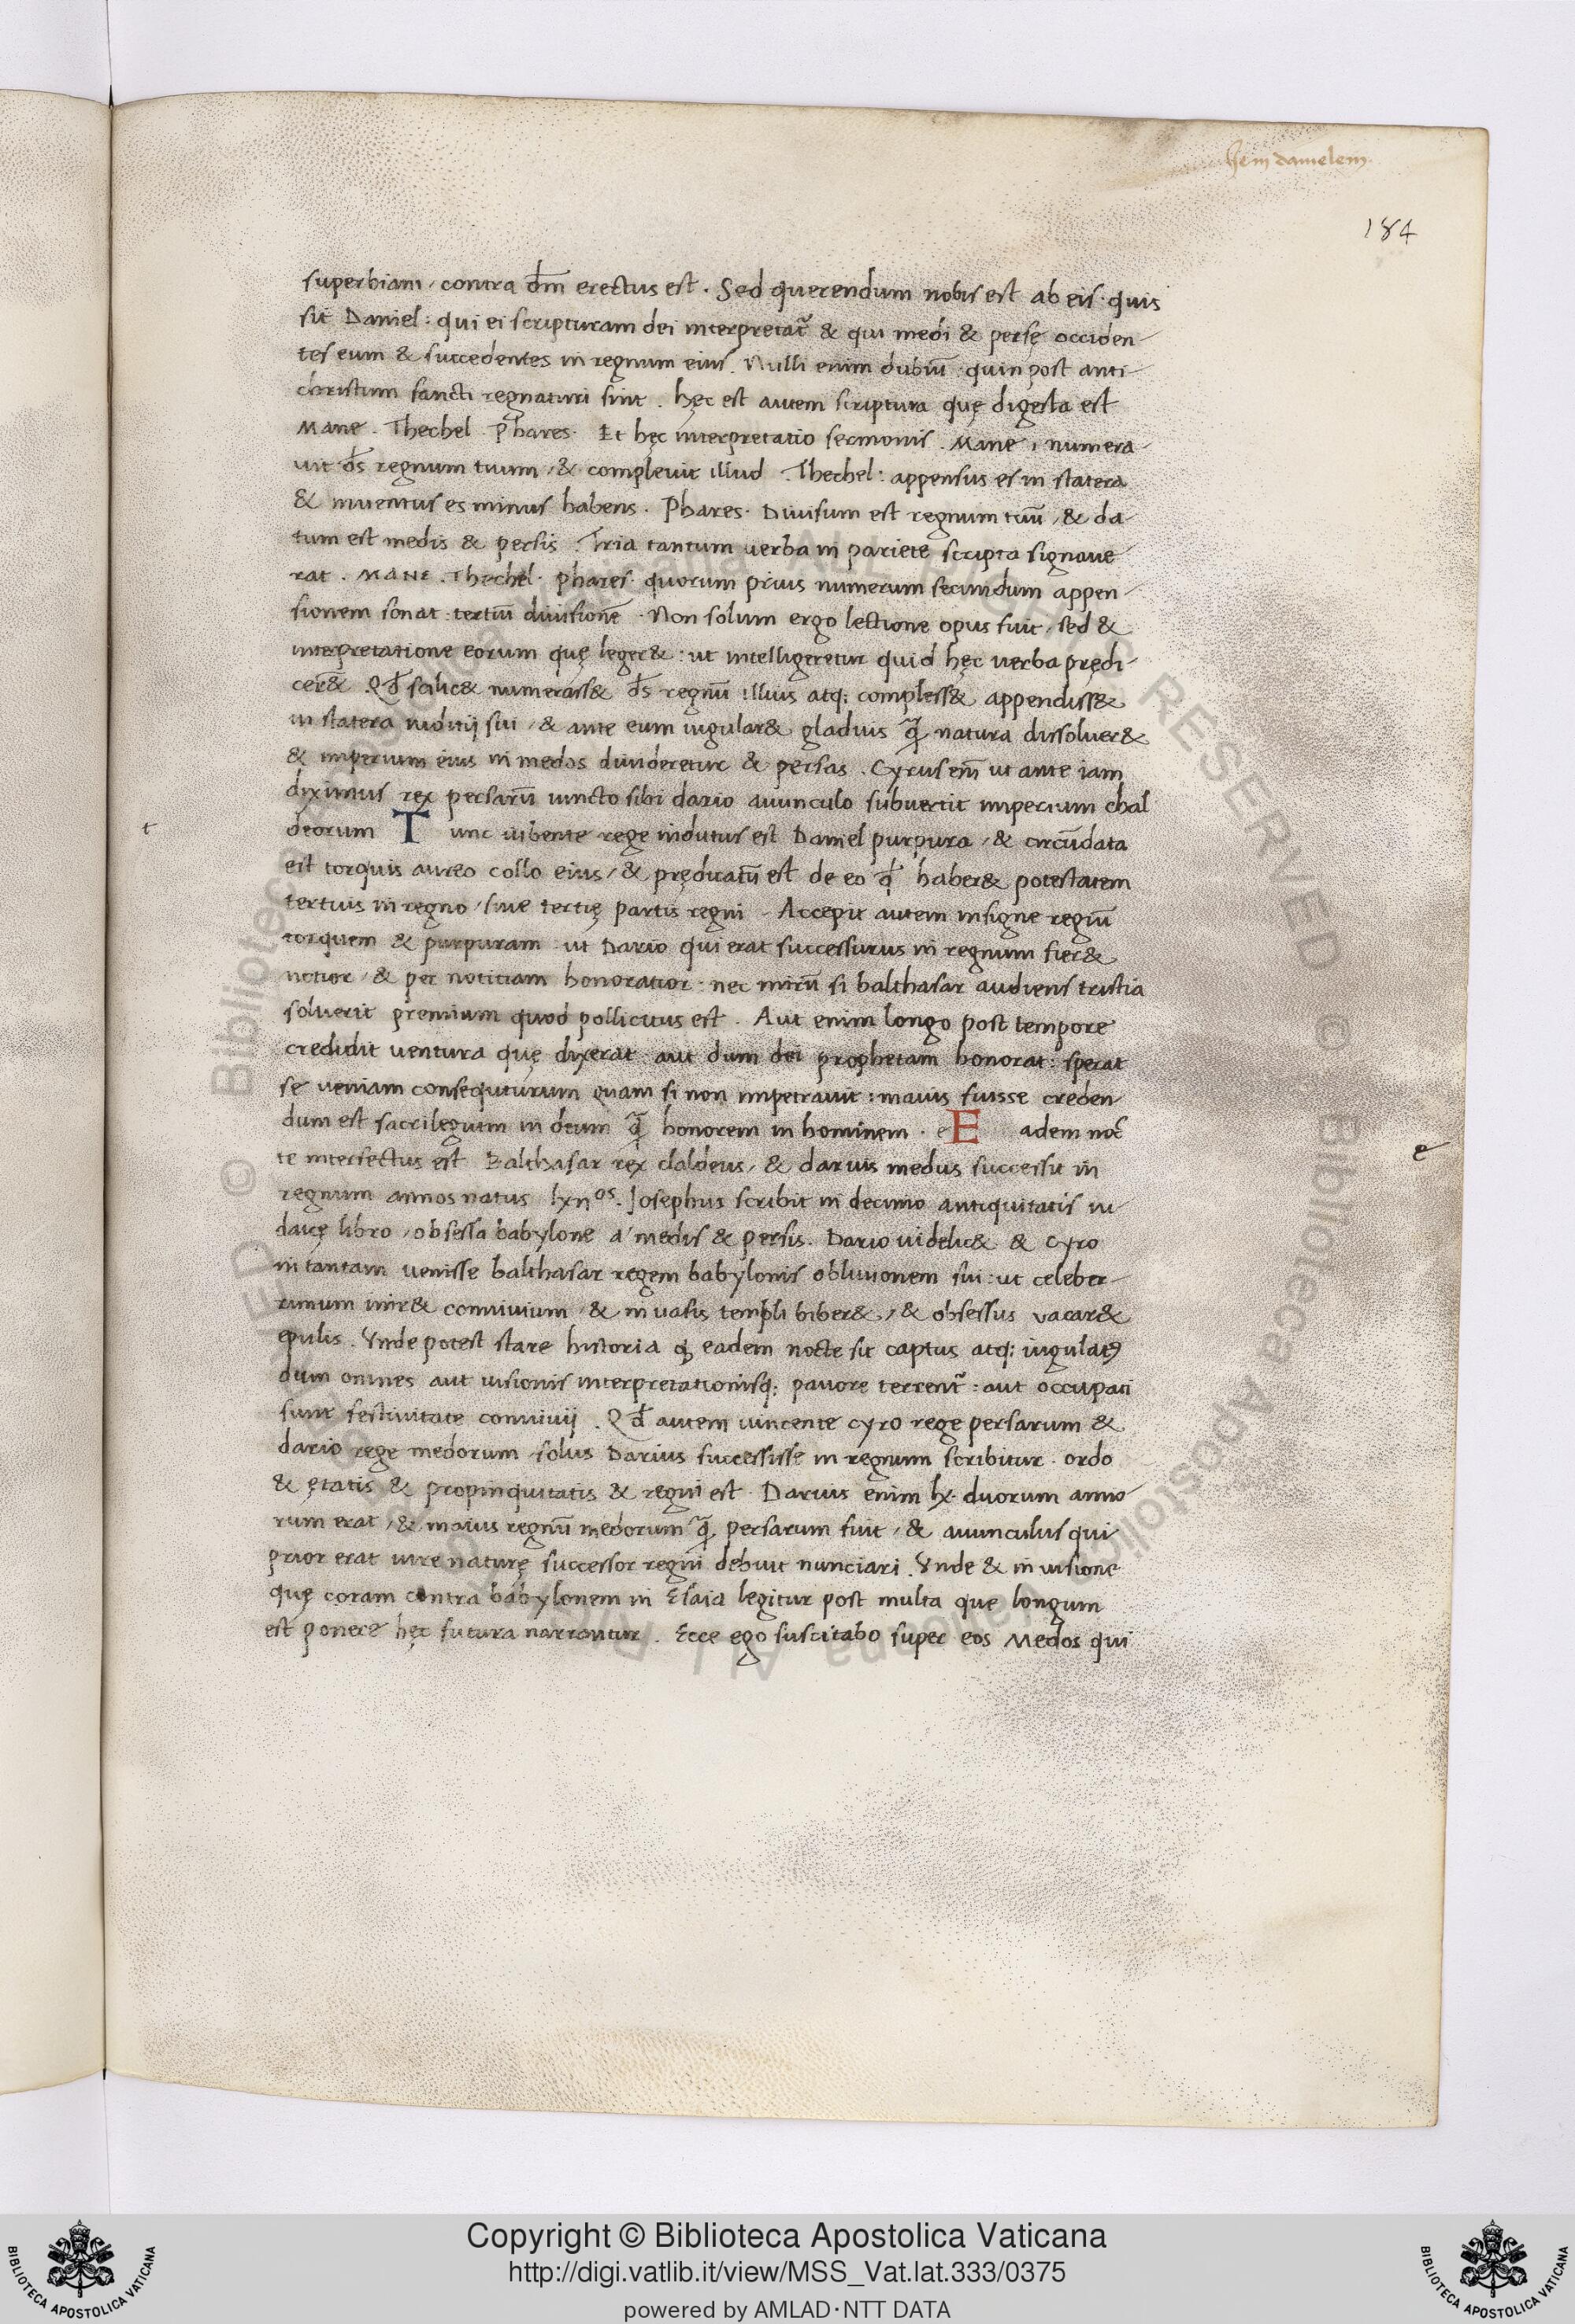 Hem danielem
184
superbiam / contra dm̄ erectus est . Sed querendum nobis est ab eis · quis
sit Daniel : qui ei scripturam dei interpretat̄ & qui medi & persę occiden-
tes eum & succedentes in regnum eius . Nulli enim dubiū : quin post anti-
christum sancti regnaturi sint . hęc est autem scriptura quę digesta est
Mane . Thechel . Phares . Et hęc interpretatio sermonis . Mane , numera-
uit ds̄ regnum tuum / & compleuit illud . Thechel : appensus es in statera
& inuentus es minus habens . Phares . Diuisum est regnum tuū / & da-
tum est medis & persis . Tria tantum uerba in pariete scripta signaue-
rat . MANE . Thechel . phares . quorum prius numerum secundum appen-
sionem sonat : tertiū diuisionē . Non solum ergo lectione opus fuit / sed &
interpretatione eorum quę leger& : ut intelligeretur quid hęc uerba prędi-
cer& . Qd̄ scilic& numerass& ds̄ regnū illius atq; compless& appendiss&
in statera iuditij sui / & ante eum iugular& gladius q̄ natura dissoluer&
& imperium eius in medos diuideretur & persas . Cyrus em̄ ut ante iam
diximus rex persarū iuncto sibi dario auunculo subuertit imperium chal
deorum T unc iubente rege indutus est Daniel purpura / & circūdata
t
est torquis aureo collo eius / & prędicatū est de eo qd̄ haber& potestatem
tertius in regno / siue tertię partis regni . Accepit autem insigne regiū
torquem & purpuram : ut Dario qui erat successurus in regnum fier&
notior / & per notitiam honoratior : nec mirū si balthasar audiens tristia
soluerit premium quod pollicitus est . Aut enim longo post tempore
credidit uentura quę dixerat : aut dum dei prophetam honorat : sperat
se ueniam consequturum quam si non impetrauit : maius fuisse creden-
dum est sacrilegium in deum q̄ honorem in hominem . e E adem noc̄
e
te interfectus est Balthasar rex chaldeus / & darius medus successit in
regnum annos natus lxiiᵒˢ . Josephus scribit in decimo antiquitatis iu-
daicę libro / obsessa babylone a' medis & persis . Dario uidelic& & Cyro
in tantam uenisse balthasar regem babylonis obliuionem sui : ut celeber-
rimum inir& conuiuium / & in uasis templi biber& / & obsessus vacar&
epulis . Vnde potest stare historia q̨ eadem nocte sit captus atq; iugulatꝰ
dum omnes aut uisionis interpretationisq; pauore terrent̄ : aut occupati
sunt festiuitate conuiuij . Qd̄ autem uincente cyro rege persarum &
dario rege medorum solus Darius successisse in regnum scribitur . ordo
& ętatis & propinquitatis & regni est . Darius enim lx duorum anno-
rum erat / & maius regnū medorum q̄ persarum fuit / & auunculus qui
prior erat iure naturę successor regni debuit nunciari . Vnde & in uisione
quę coram contra babylonem in Esaia legitur post multa que longum
est ponere hęc futura narrantur . Ecce ego suscitabo super eos Medos qui
BIBLIOTECA APOSTOLICA VATICANA
Copyright © Biblioteca Apostolica Vaticana
http://digi.vatlib.it/view/MSS_Vat.lat.333/0375
powered by AMLAD·NTT DATA
BIBLIOTECA APOSTOLICA VATICANA